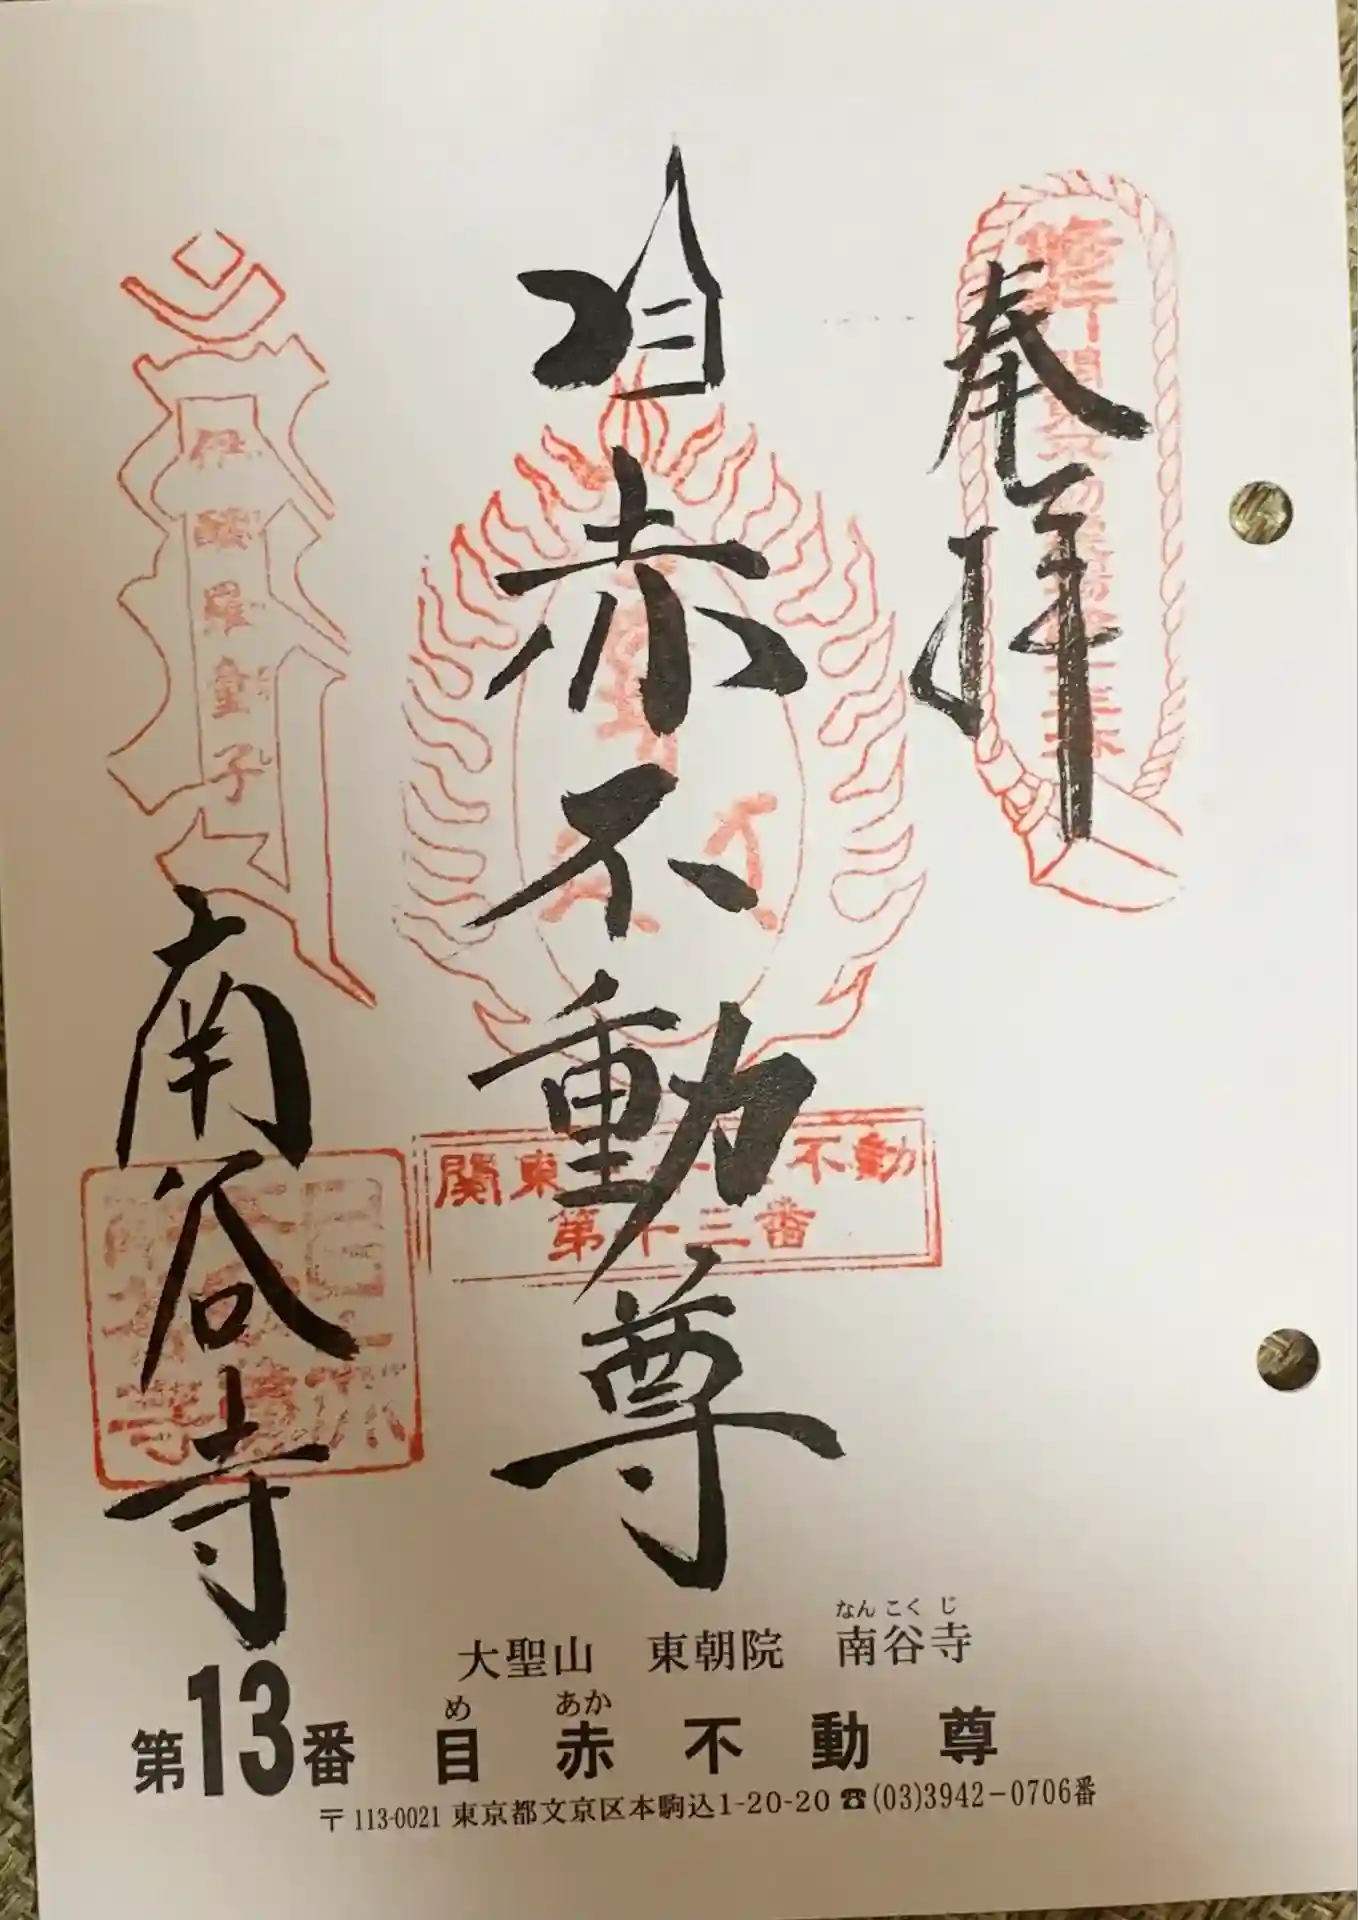 奉拝
目赤不動尊
南谷寺
修行
童子
関東 不動
第十三番
なん こく じ
大聖山 東朝院 南谷寺
め あか
第13番 目赤不動尊
〒113-0021 東京都文京区本駒込1-20-20 ☎(03)3942-0706番